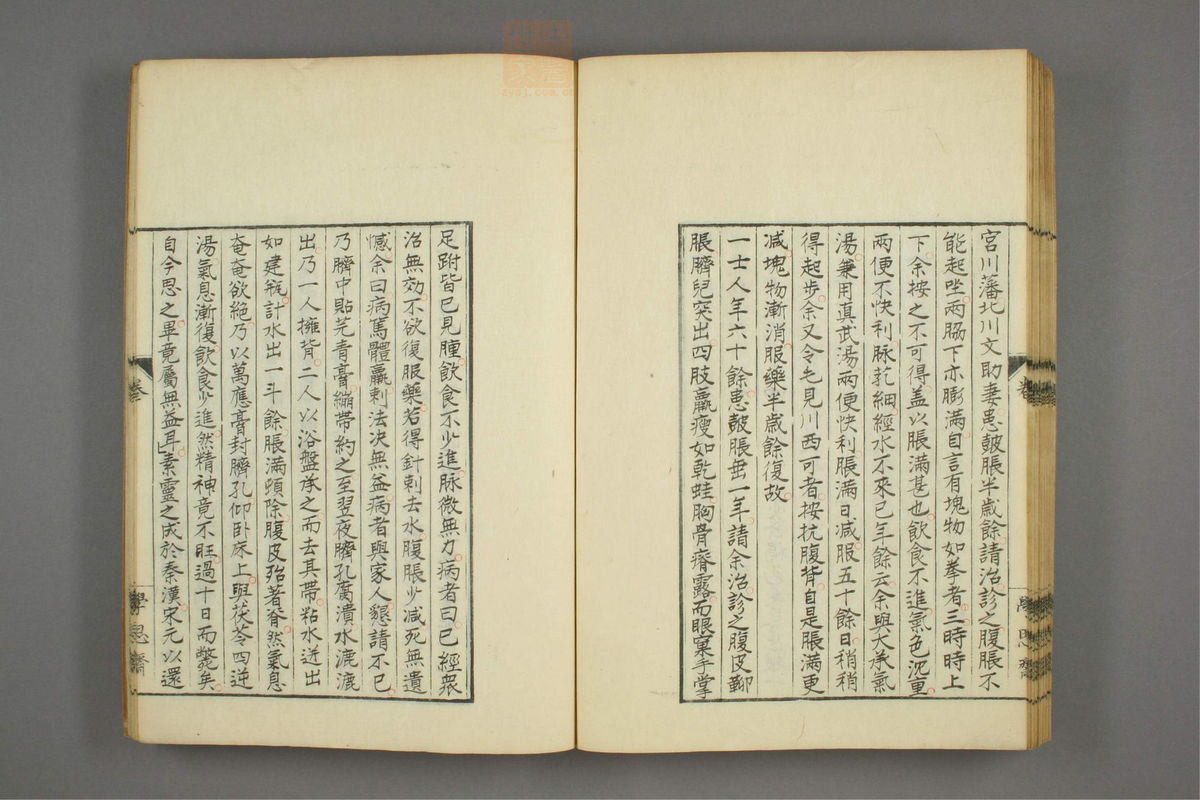 宮川藩北川文助妻患皷脹半歳餘請治診之腹脹不
能起坐兩脇下亦膨滿自言有塊物如拳者三時時上
下余按之不可得盖以脹滿甚也飲食不進氣色沉重
兩便不快利脉芤細經水不來已年餘云余與大承氣
湯兼用真武湯兩便快利脹滿日减服五十餘日稍稍
得起步余又令乞見川西可者按抗腹背自是脹滿更
减塊物漸消服藥半歲餘復故
一士人年六十餘患皷脹岀一年請余治診之腹皮鞕
脹臍兒突出四肢羸瘦如乾蛙胸骨瘠露而眼窠手掌
足跗皆已見腫飲食不少進脉微無力病者曰已經衆
治無効不欲復服藥若得針刺去水腹脹少减死無遺
憾余曰病篤體羸刺法決無益病者與家人懇請不已
乃臍中貼芫青膏繃帶約之至翌夜臍孔腐潰水漉漉
出乃一人擁背二人以浴盤承之而去其帶粘水迸出
如建瓶計水出一斗餘脹滿頓除腹皮殆著脊然氣息
奄奄欲絶乃以萬應膏封臍孔仰卧床上與茯苓四逆
湯氣息漸復飲食少進然精神竟不旺過十日而斃矣
自今思之畢竟屬無益耳素靈之成於秦漢宋元以還
卷
學思齋